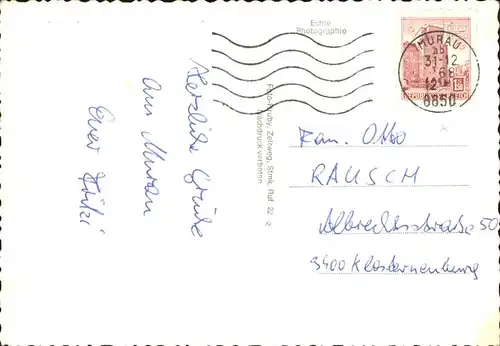 Echte
Photographie
MURAU
31-12
68
12
8850
REPUBLIK ÖSTERREICH
Herzliche Grüße
aus Murau
Euer Fritzi
Foto-Gruby, Zeltweg, Stmk, Ruf 22
Nachdruck verboten
Fam. Otto
RAUSCH
Albrechtsstraße 50
3400 Klosterneuburg